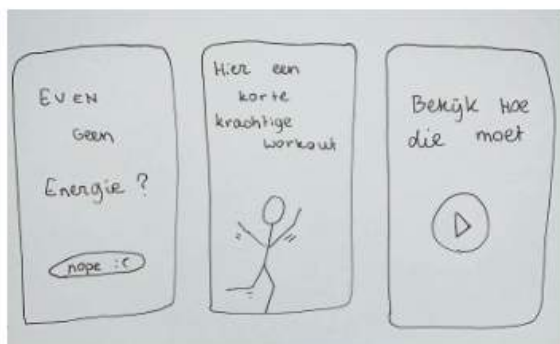 EVEN
Geen
Energie?
nope :(
Hier een
korte
krachtige
workout
Bekijk hoe
die moet